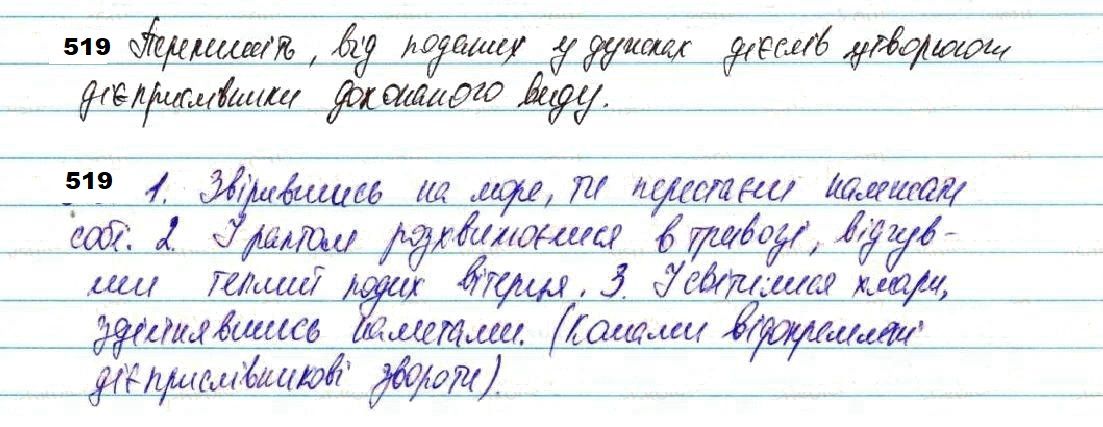 519 Перепишіть, від поданих у дужках дієслів утворюючи
дієприслівники доконаного виду.
519 1. Звірившись на море, ти перестаєш належати
собі. 2. І раптом розхвилюєшся в тривозі, відчув-
ши теплий подих вітерця. 3. І світилися хмари,
здійнявшись наметами. (Комами відокремлені
дієприслівникові звороти).